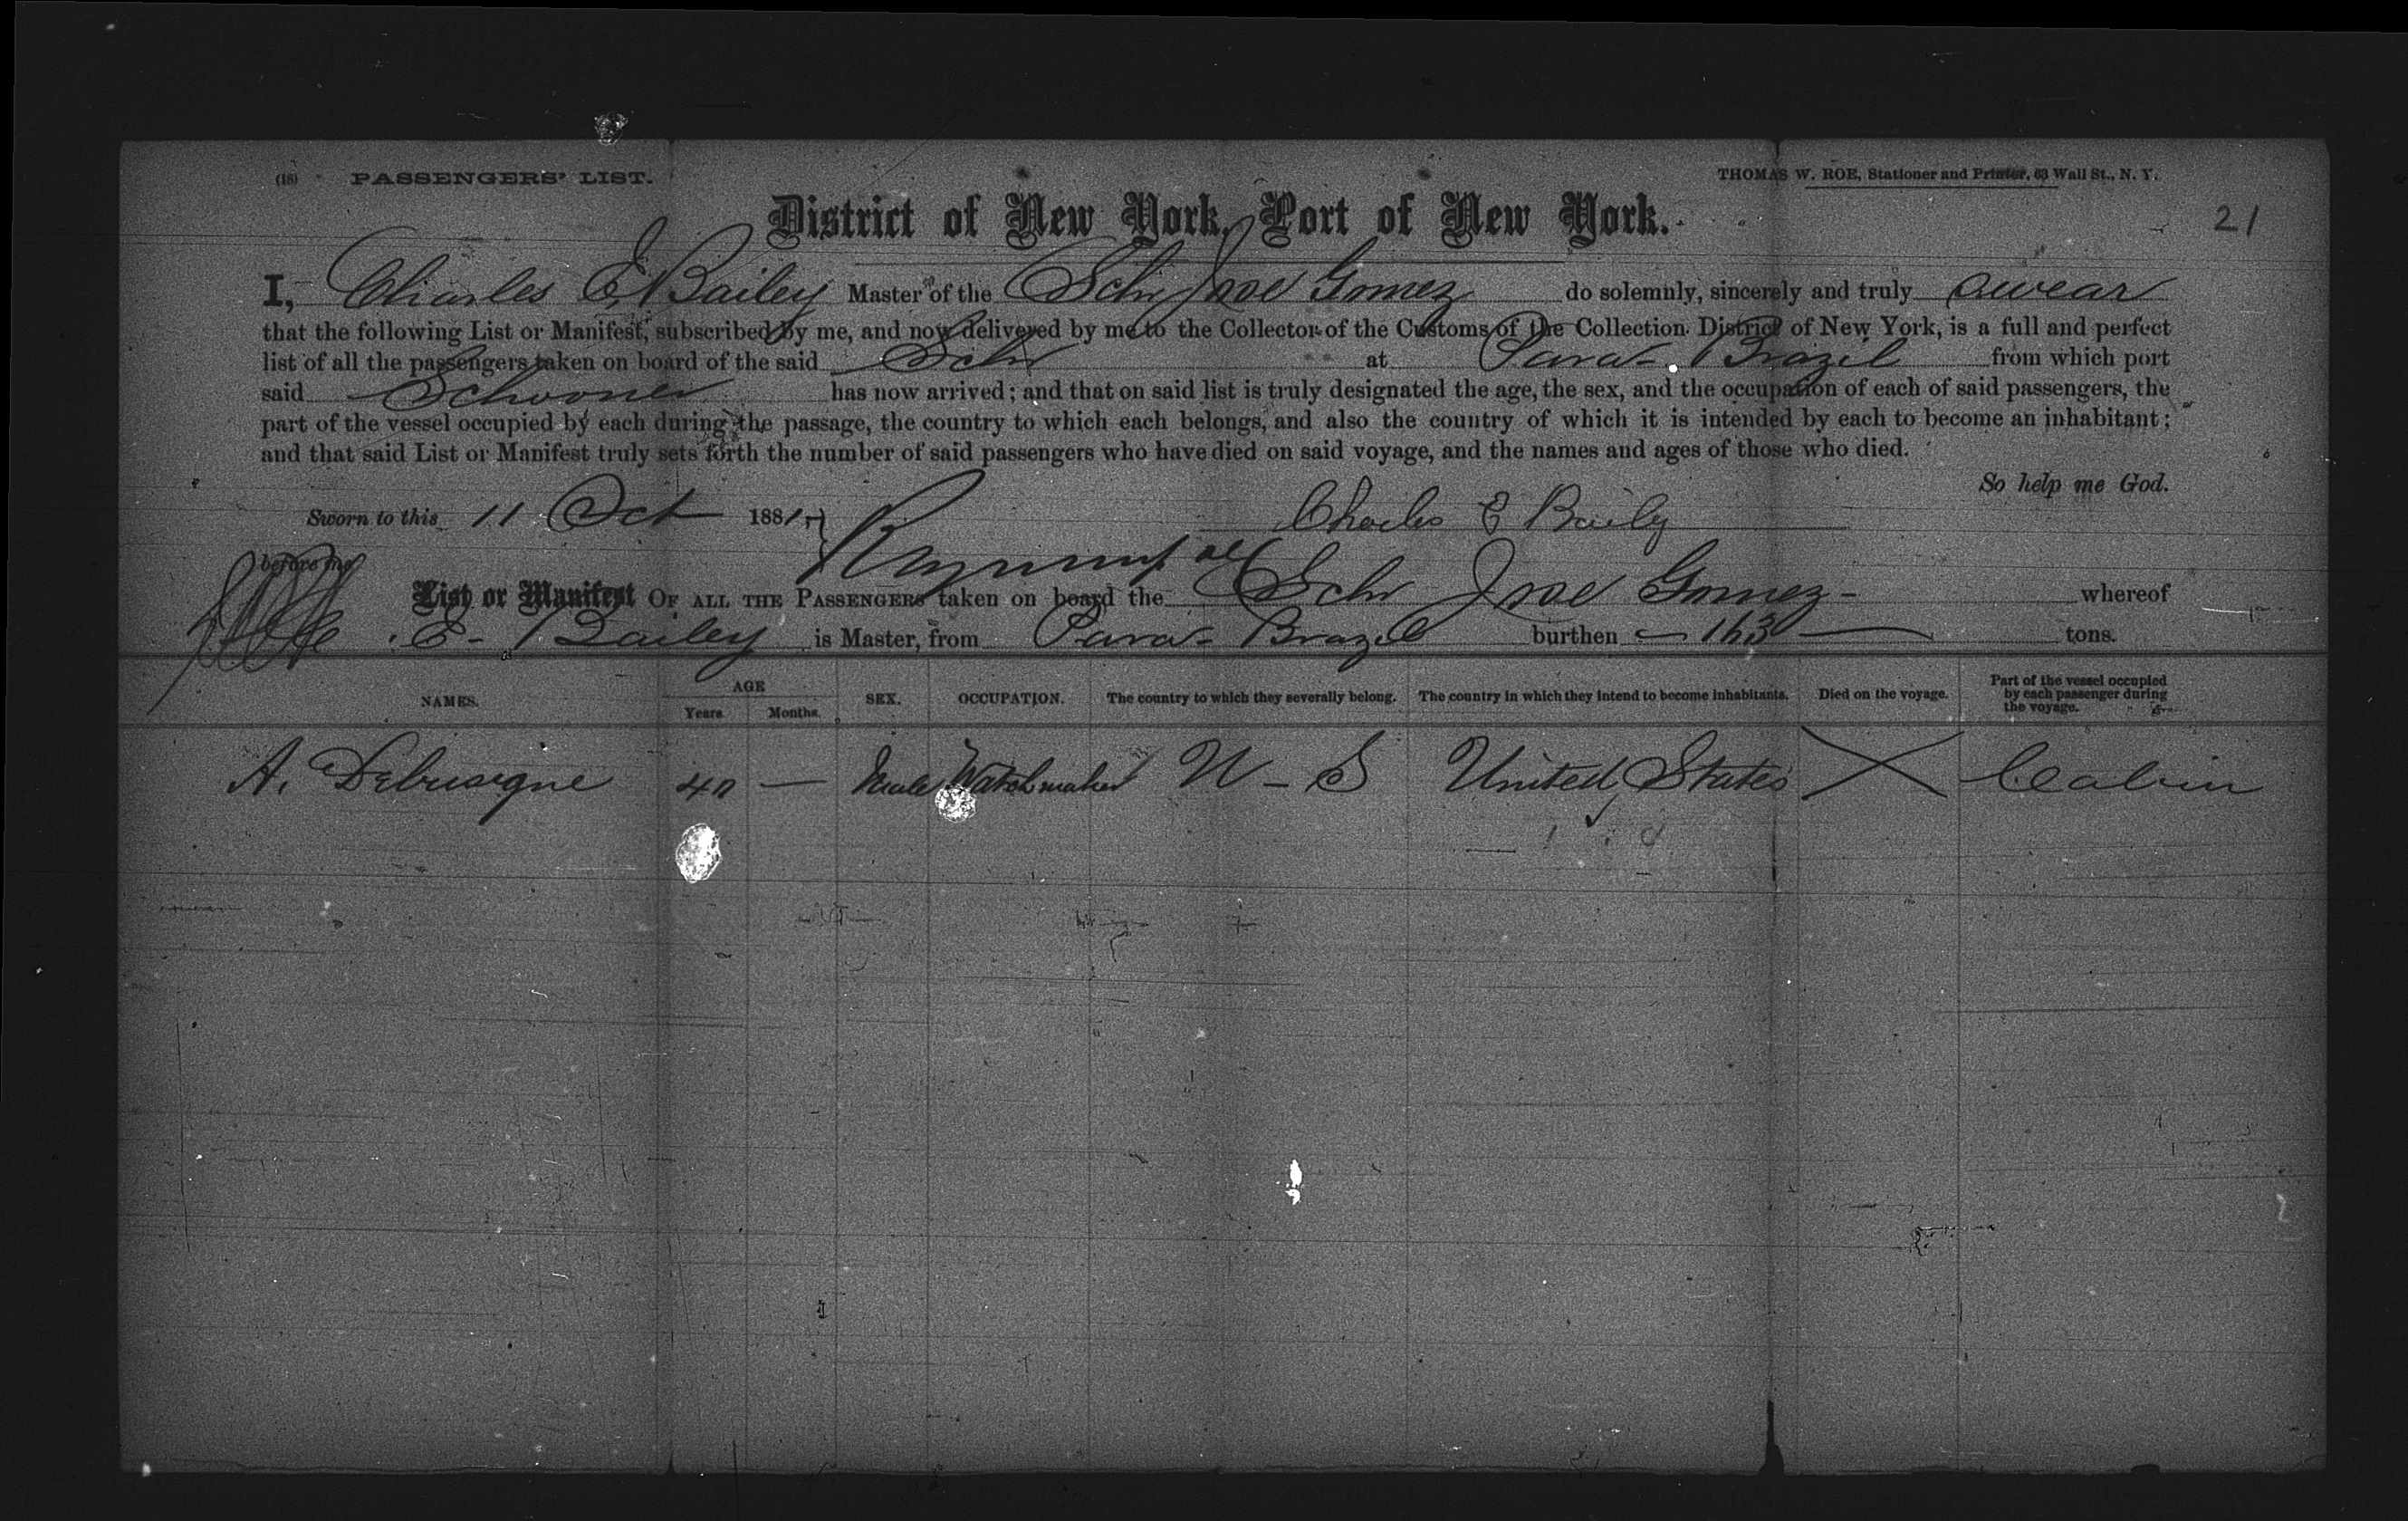 (18) PASSENGERS' LIST.
THOMAS W. ROE, Stationer and Printer, 63 Wall St., N. Y.
District of New York, Port of New York.
21
I, Charles E. Bailey Master of the Schr Jose Gomez do solemnly, sincerely and truly swear
that the following List or Manifest, subscribed by me, and now delivered by me to the Collector of the Customs of the Collection District of New York, is a full and perfect
list of all the passengers taken on board of the said Schr at Para - Brazil from which port
said Schooner has now arrived; and that on said list is truly designated the age, the sex, and the occupation of each of said passengers, the
part of the vessel occupied by each during the passage, the country to which each belongs, and also the country of which it is intended by each to become an inhabitant;
and that said List or Manifest truly sets forth the number of said passengers who have died on said voyage, and the names and ages of those who died.
So help me God.
Sworn to this 11 Oct 1881
Charles E Baily
before me
List or Manifest OF ALL THE PASSENGERS taken on board the Schr Jose Gomez - whereof
E - Bailey is Master, from Para - Brazil burthen - 163 - tons.
NAMES. AGE Years. Months. SEX. OCCUPATION. The country to which they severally belong. The country in which they intend to become inhabitants. Died on the voyage. Part of the vessel occupied by each passenger during the voyage.
A. 40 — Male Watchmaker U - S United States X Cabin